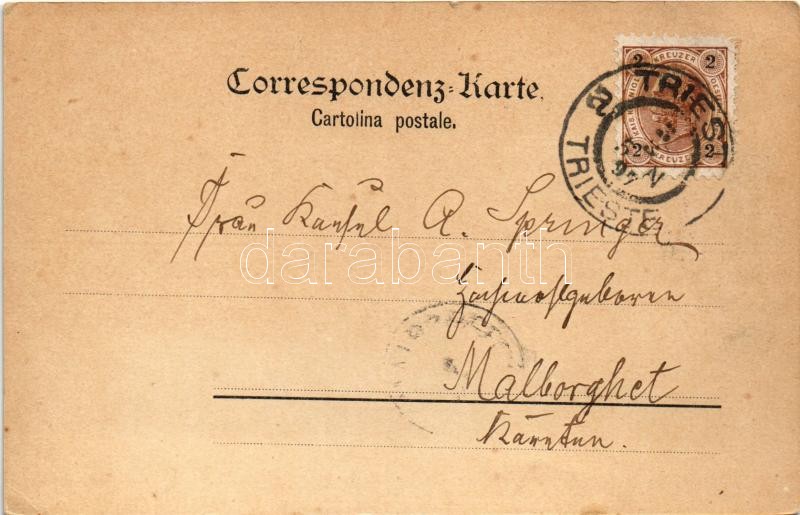 Correspondenz-Karte.
Cartolina postale.
2 KREUZER 2
2 KREUZER 2
TRIEST
TRIESTE
97
Frau Konsul A. Springer
Hochwohlgeboren
Malborghet
Kärnten.
darabanth